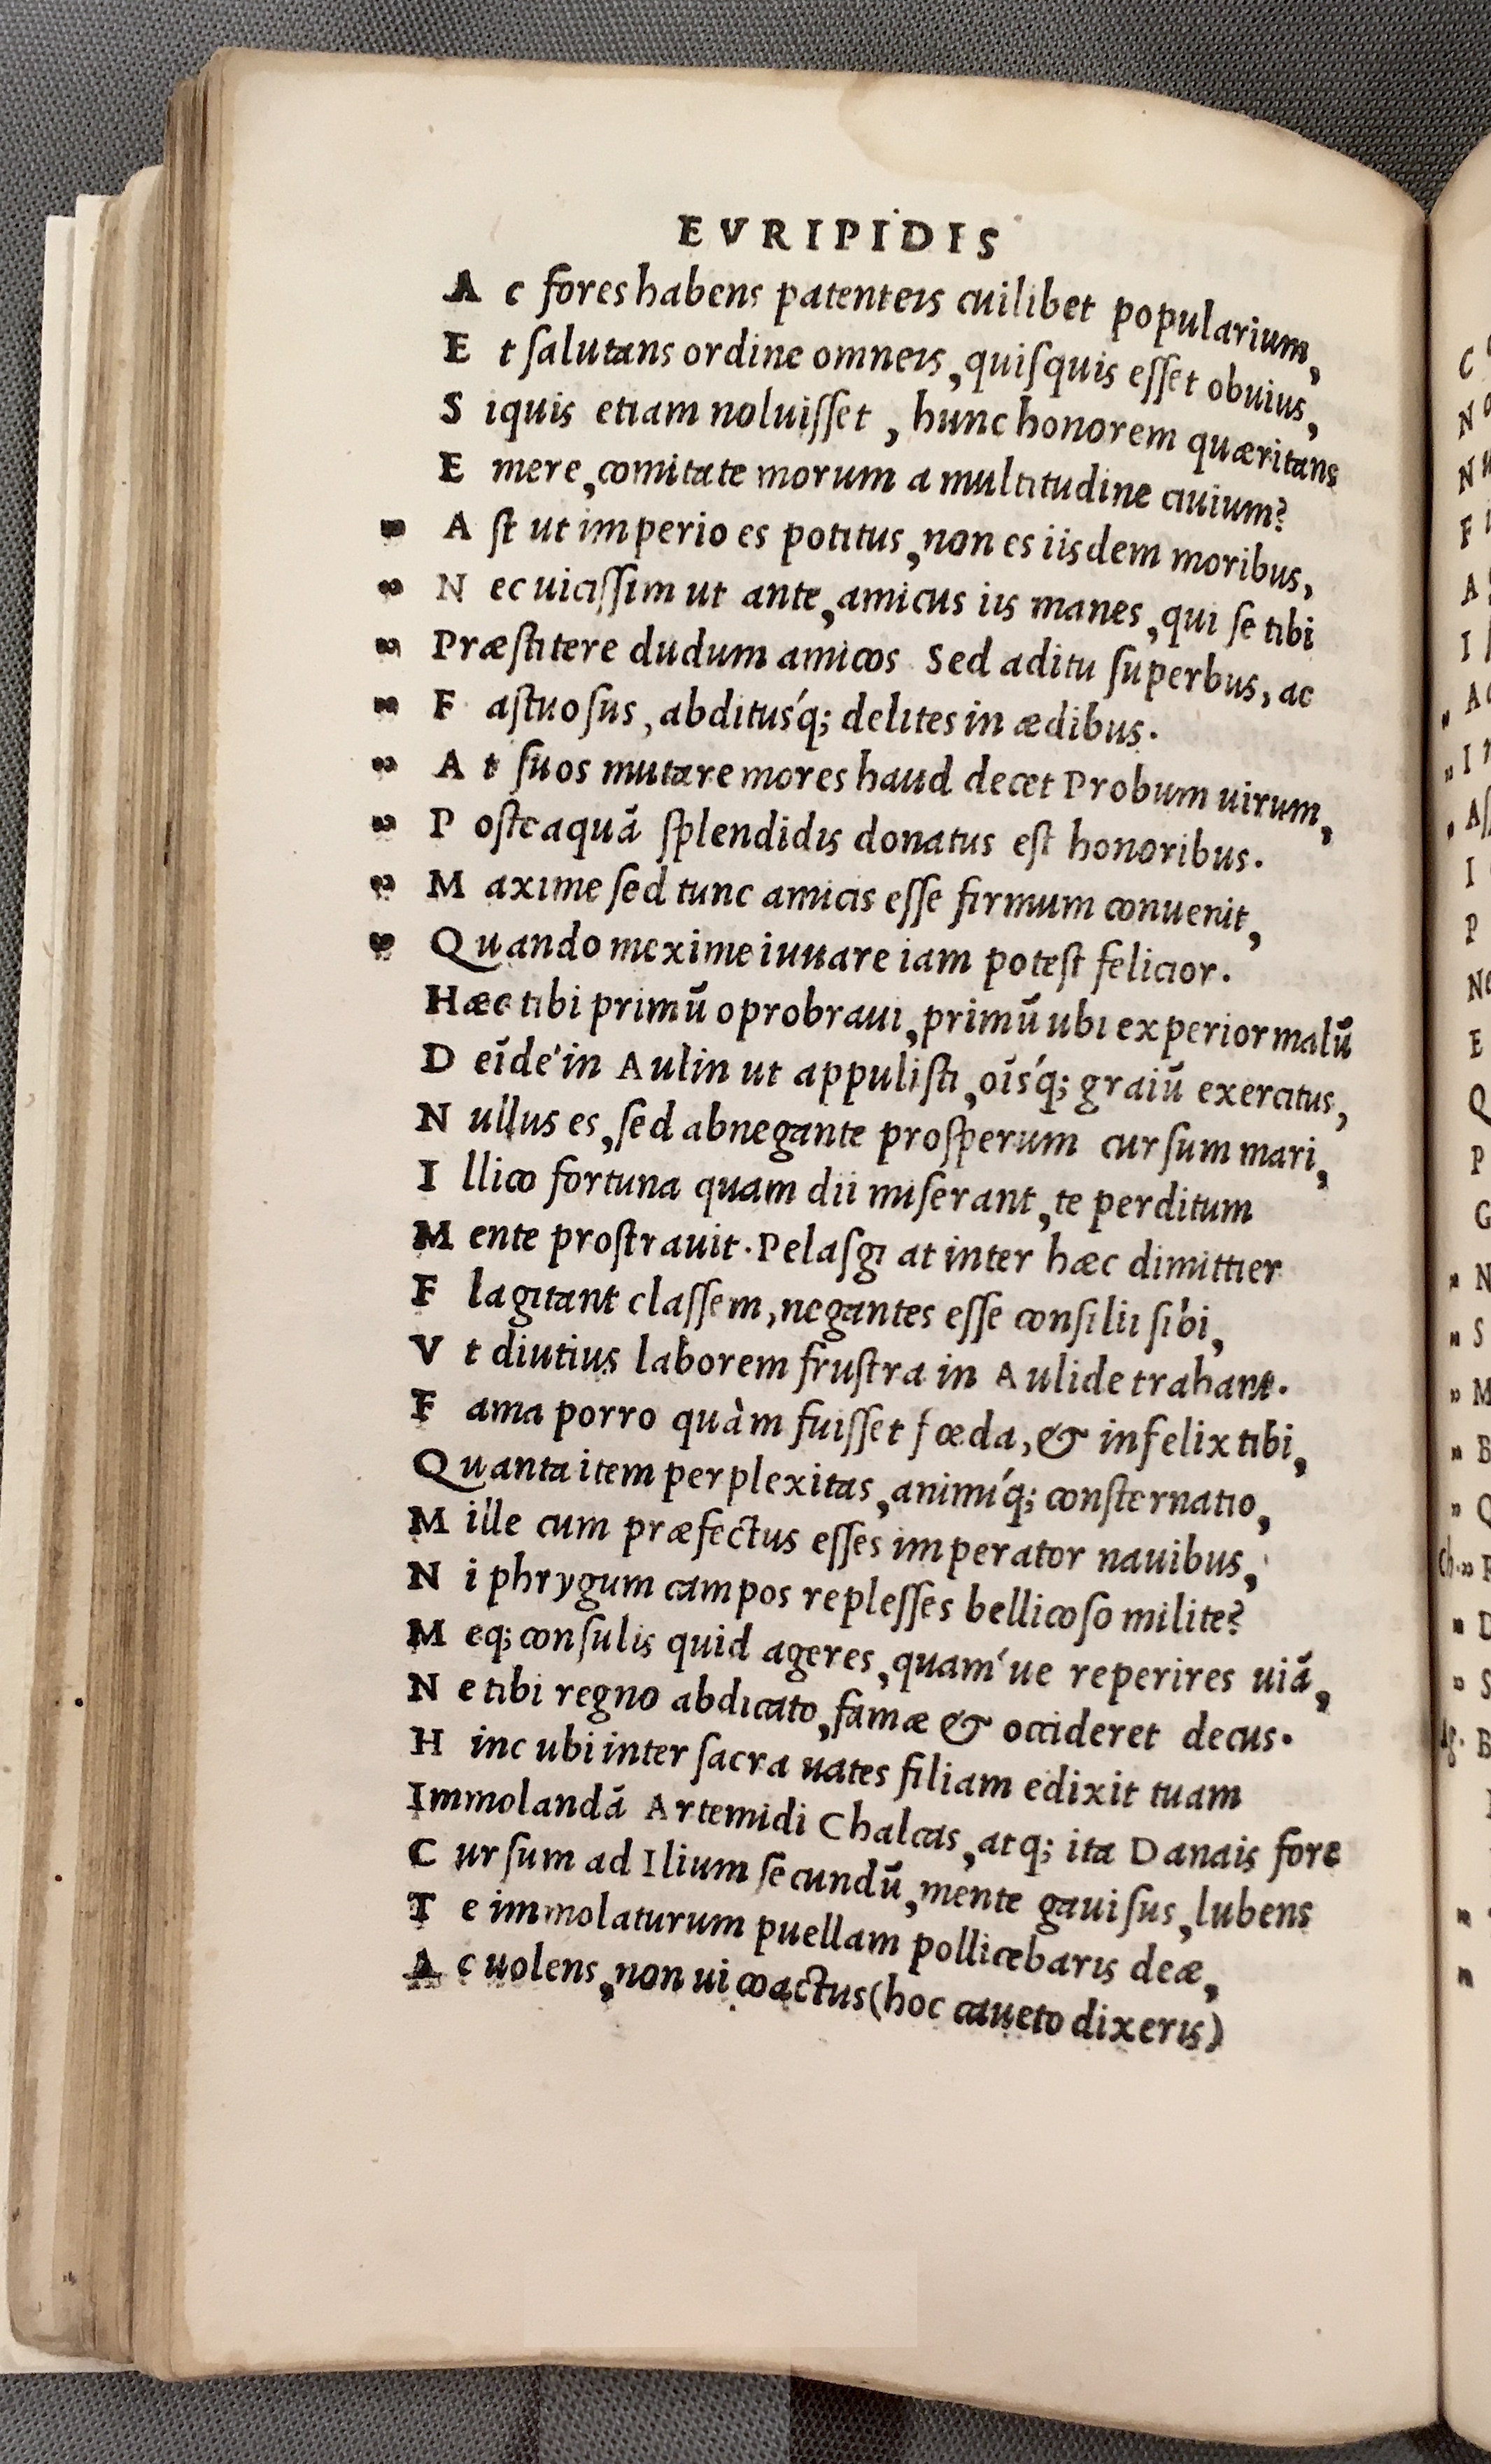 EVRIPIDIS
A c fores habens patenteis cuilibet popularium,
E t salutans ordine omneis, quisquis esset obuius,
S iquis etiam noluisset, hunc honorem quæritans
E mere, comitate morum a multitudine ciuium?
» A st ut imperio es potitus, non es iisdem moribus,
» N ec uicissim ut ante, amicus iis manes, qui se tibi
» Præstitere dudum amicos Sed aditu superbus, ac
» F astuosus, abditus'q; delites in ædibus.
» A t suos mutare mores haud decet Probum uirum,
» P osteaquā splendidis donatus est honoribus.
» M axime sed tunc amicis esse firmum conuenit,
» Quando mexime iuuare iam potest felicior.
Hæc tibi primū oprobraui, primū ubi experior malū
D eīde'in Aulin ut appulisti, oīs'q; graiū exercitus,
N ullus es, sed abnegante prosperum cursum mari,
I llico fortuna quam dii miserant, te perditum
M ente prostrauit. Pelasgi at inter hæc dimittier
F lagitant classem, negantes esse consilii sibi,
V t diutius laborem frustra in Aulide trahant.
F ama porro quàm fuisset fœda, & infelix tibi,
Quanta item perplexitas, animi'q; consternatio,
M ille cum præfectus esses imperator nauibus,
N i phrygum campos replesses bellicoso milite?
M eq; consulis quid ageres, quam'ue reperires uiā,
N e tibi regno abdicato, famæ & occideret decus.
H inc ubi inter sacra uates filiam edixit tuam
Immolandā Artemidi Chalcas, atq; ita Danais fore
C ursum ad Ilium secundū, mente gauisus, lubens
T e immolaturum puellam pollicebaris deæ,
A c uolens, non ui coactus (hoc caueto dixeris)